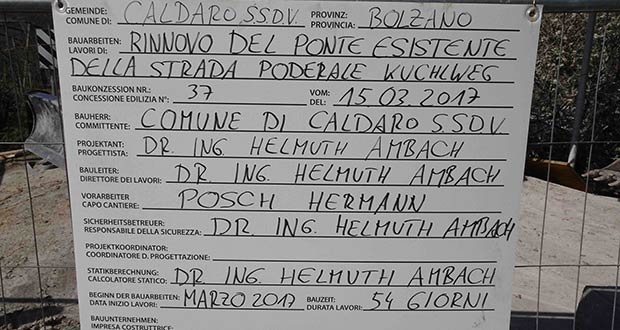 GEMEINDE: PROVINZ:
COMUNE DI: CALDARO S.S.D.V. PROVINCIA: BOLZANO
BAUARBEITEN:
LAVORI DI: RINNOVO DEL PONTE ESISTENTE
DELLA STRADA PODERALE KUCHLWEG
BAUKONZESSION NR.: VOM:
CONCESSIONE EDILIZIA N°: 37 DEL: 15.03.2017
BAUHERR:
COMMITTENTE: COMUNE DI CALDARO S.S.D.V.
PROJEKTANT:
PROGETTISTA: DR. ING. HELMUTH AMBACH
BAULEITER:
DIRETTORE DEI LAVORI: DR. ING. HELMUTH AMBACH
VORARBEITER
CAPO CANTIERE: POSCH HERMANN
SICHERHEITSBETREUER:
RESPONSABILE DELLA SICUREZZA: DR. ING. HELMUTH AMBACH
PROJEKTKOORDINATOR:
COORDINATORE D. PROGETTAZIONE:
STATIKBERECHNUNG:
CALCOLATORE STATICO: DR. ING. HELMUTH AMBACH
BEGINN DER BAUARBEITEN: BAUZEIT:
DATA INIZIO LAVORI: MARZO 2017 DURATA LAVORI: 54 GIORNI
BAUUNTERNEHMEN:
IMPRESA COSTRUTTRICE: